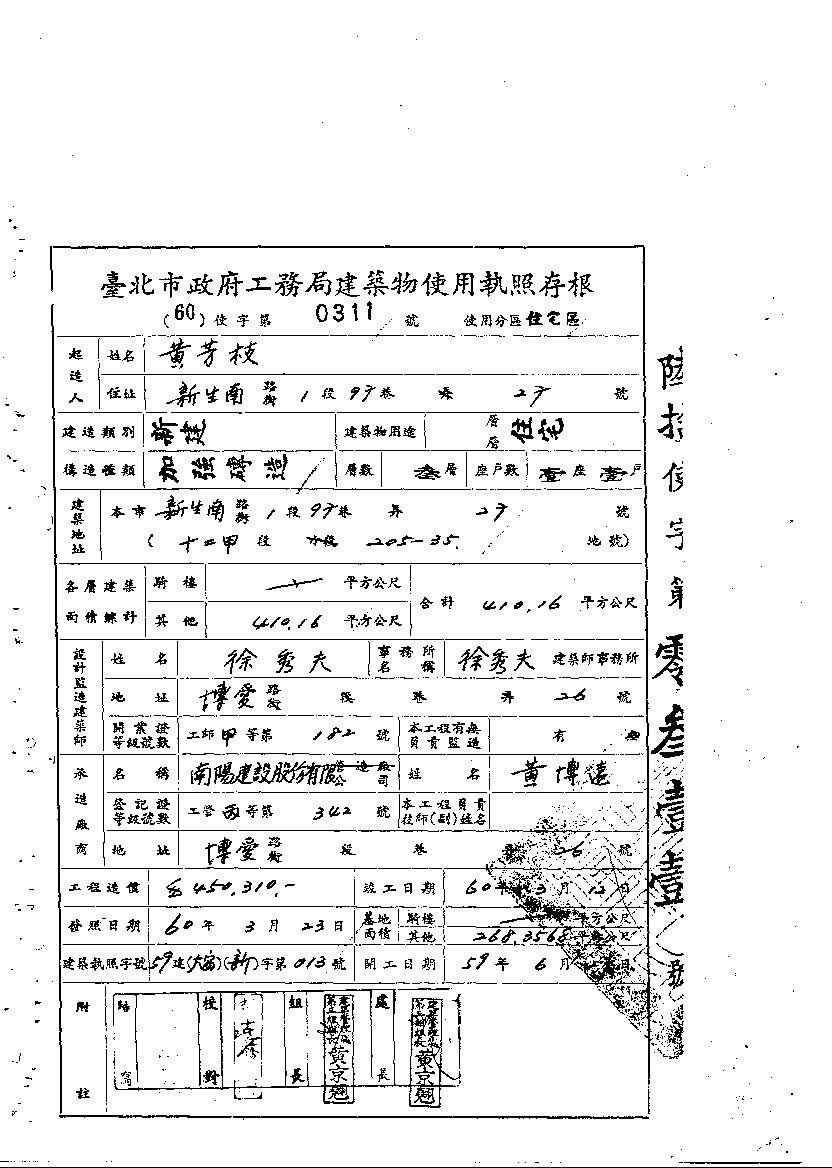 臺北市政府工務局建築物使用執照存根
(60)使字第 0311 號 使用分區 住宅區
起造人 姓名 黃芳枝
住址 新生南 路街 1 段 97 巷 弄 27 號
建造類別 新建 建築物用途 層層 住宅
構造種類 加強磚造 層數 叁層 座戶數 壹座壹戶
建築地址 本市 新生南 路街 1 段 97 巷 弄 27 號
( 十二甲 段 小段 205-35 地號)
各層建築面積總計 騎樓 平方公尺 合計 410.16 平方公尺
其他 410.16 平方公尺
設計監造建築師 姓名 徐秀夫 事務所名稱 徐秀夫 建築師事務所
地址 博愛 路街 段 巷 弄 26 號
開業證等級號數 工師 甲 等第 182 號 本工程有無負責監造 有 無
承造廠商 名稱 南陽建設股份有限 營造廠公司 姓名 黃博遠
登記證等級號數 工營 丙 等第 342 號 本工程負責技師(副)姓名
地址 博愛 路街 段 巷 弄 26 號
工程造價 450,310.- 竣工日期 60 年 3 月 12 日
發照日期 60 年 3 月 23 日 基地面積 騎樓 平方公尺
其他 268.3568 平方公尺
建築執照字號 59 建(大安)(新)字第 013 號 開工日期 59 年 6 月 日
附註 繕寫 校對 組長 黃京翹 處長 黃京翹
陸拾使字第零叁壹壹號